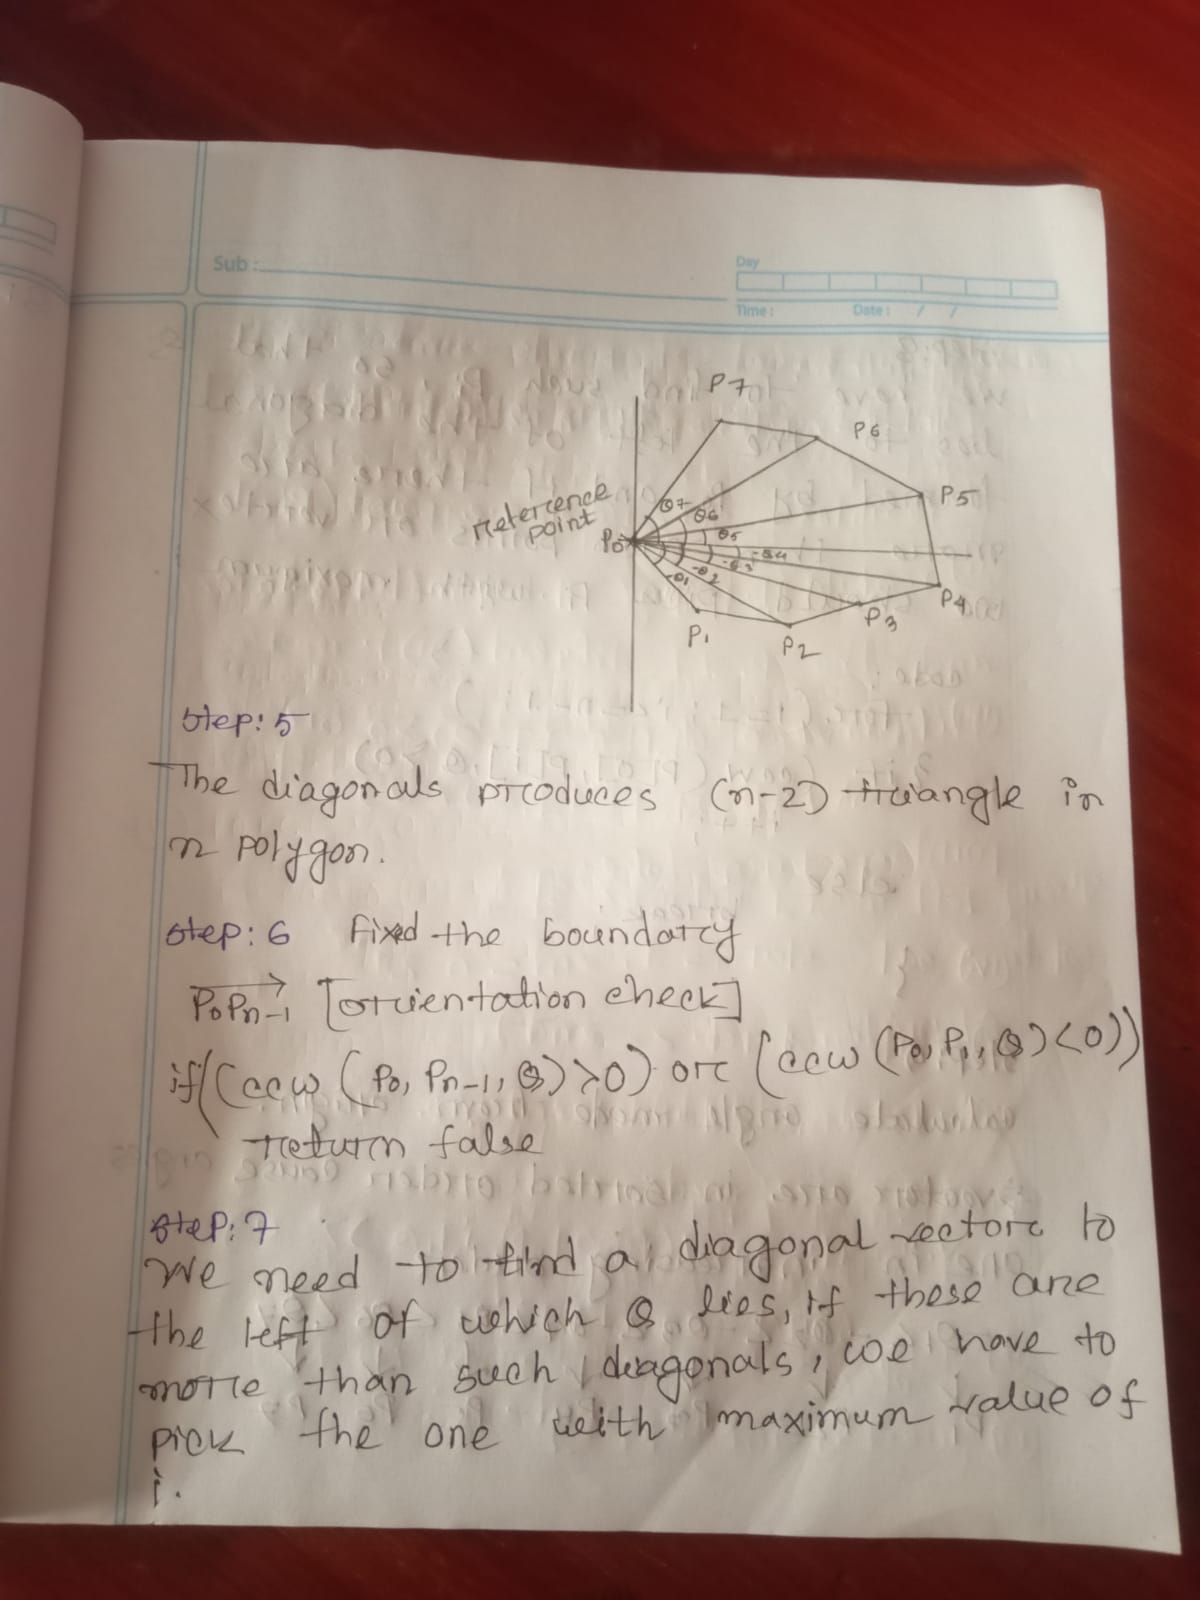 Sub:
Day
Time:
Date: / /
P7
P6
P5
reference
point
P0
θ7
θ6
θ5
-θ4
-θ3
-θ2
-θ1
P4
P3
P1
P2
Step: 5
The diagonals produces (n-2) triangle in
n polygon.
Step: 6 Fixed the boundary
P0Pn-1 [orientation check]
if((ccw (P0, Pn-1, Q)>0) or (ccw (P0, P1, Q)<0))
return false
Step: 7
We need to find a diagonal vector to
the left of which Q lies, if these are
more than such diagonals, we have to
pick the one with maximum value of
i.